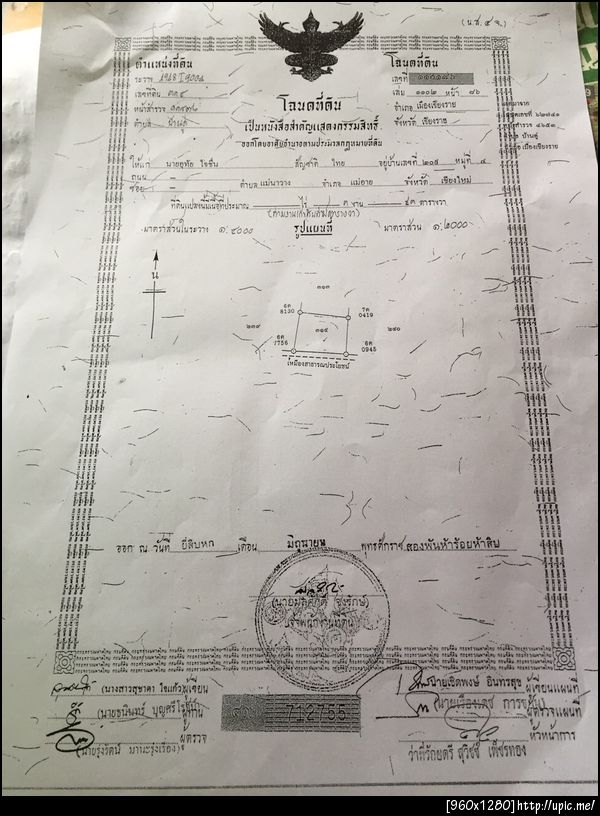 (น.ส. ๔ จ.)
ตำแหน่งที่ดิน
ระวาง
เลขที่ดิน ๓๑๔
หน้าสำรวจ
ตำบล
โฉนดที่ดิน
เลขที่ ๑๑๐๑๘๖
เล่ม ๑๑๐๒ หน้า ๘๖
อำเภอ เมืองเชียงราย
จังหวัด เชียงราย
โฉนดที่ดิน
เป็นหนังสือสำคัญแสดงกรรมสิทธิ์
ออกโดยอาศัยอำนาจตามประมวลกฎหมายที่ดิน
ให้แก่ นายอุทัย ใจชื่น สัญชาติ ไทย อยู่บ้านเลขที่ ๒๐๙ หมู่ที่ ๔
ถนน –
ซอย – ตำบล แม่นาวาง อำเภอ แม่อาย จังหวัด เชียงใหม่
ที่ดินแปลงนี้มีเนื้อที่ประมาณ – ไร่ ๓ งาน ๔๓ ตารางวา
มาตราส่วนในระวาง ๑:๔๐๐๐
รูปแผนที่
มาตราส่วน ๑:๒๐๐๐
น
๓๑๓
6ค 8130
7ค 0419
๒๓๙
๓๑๔
๒๔๐
6ค 1756
6ค 0945
เหมืองสาธารณประโยชน์
ออก ณ วันที่ ยี่สิบหก เดือน มิถุนายน พุทธศักราช สองพันห้าร้อยห้าสิบ
เจ้าพนักงานที่ดิน
(นางสาวสุชาดา ใจแก้ว) ผู้เขียน
ผู้ทาน
(นายรุ่งรัตน์ มานะรุ่งเรือง) ผู้ตรวจ
712755
นายเชิดพงษ์ อินทรสุข ผู้เขียนแผนที่
ผู้ตรวจแผนที่
ว่าที่ร้อยตรี เพ็ชรทอง หัวหน้าการ
[960x1280]http://upic.me/